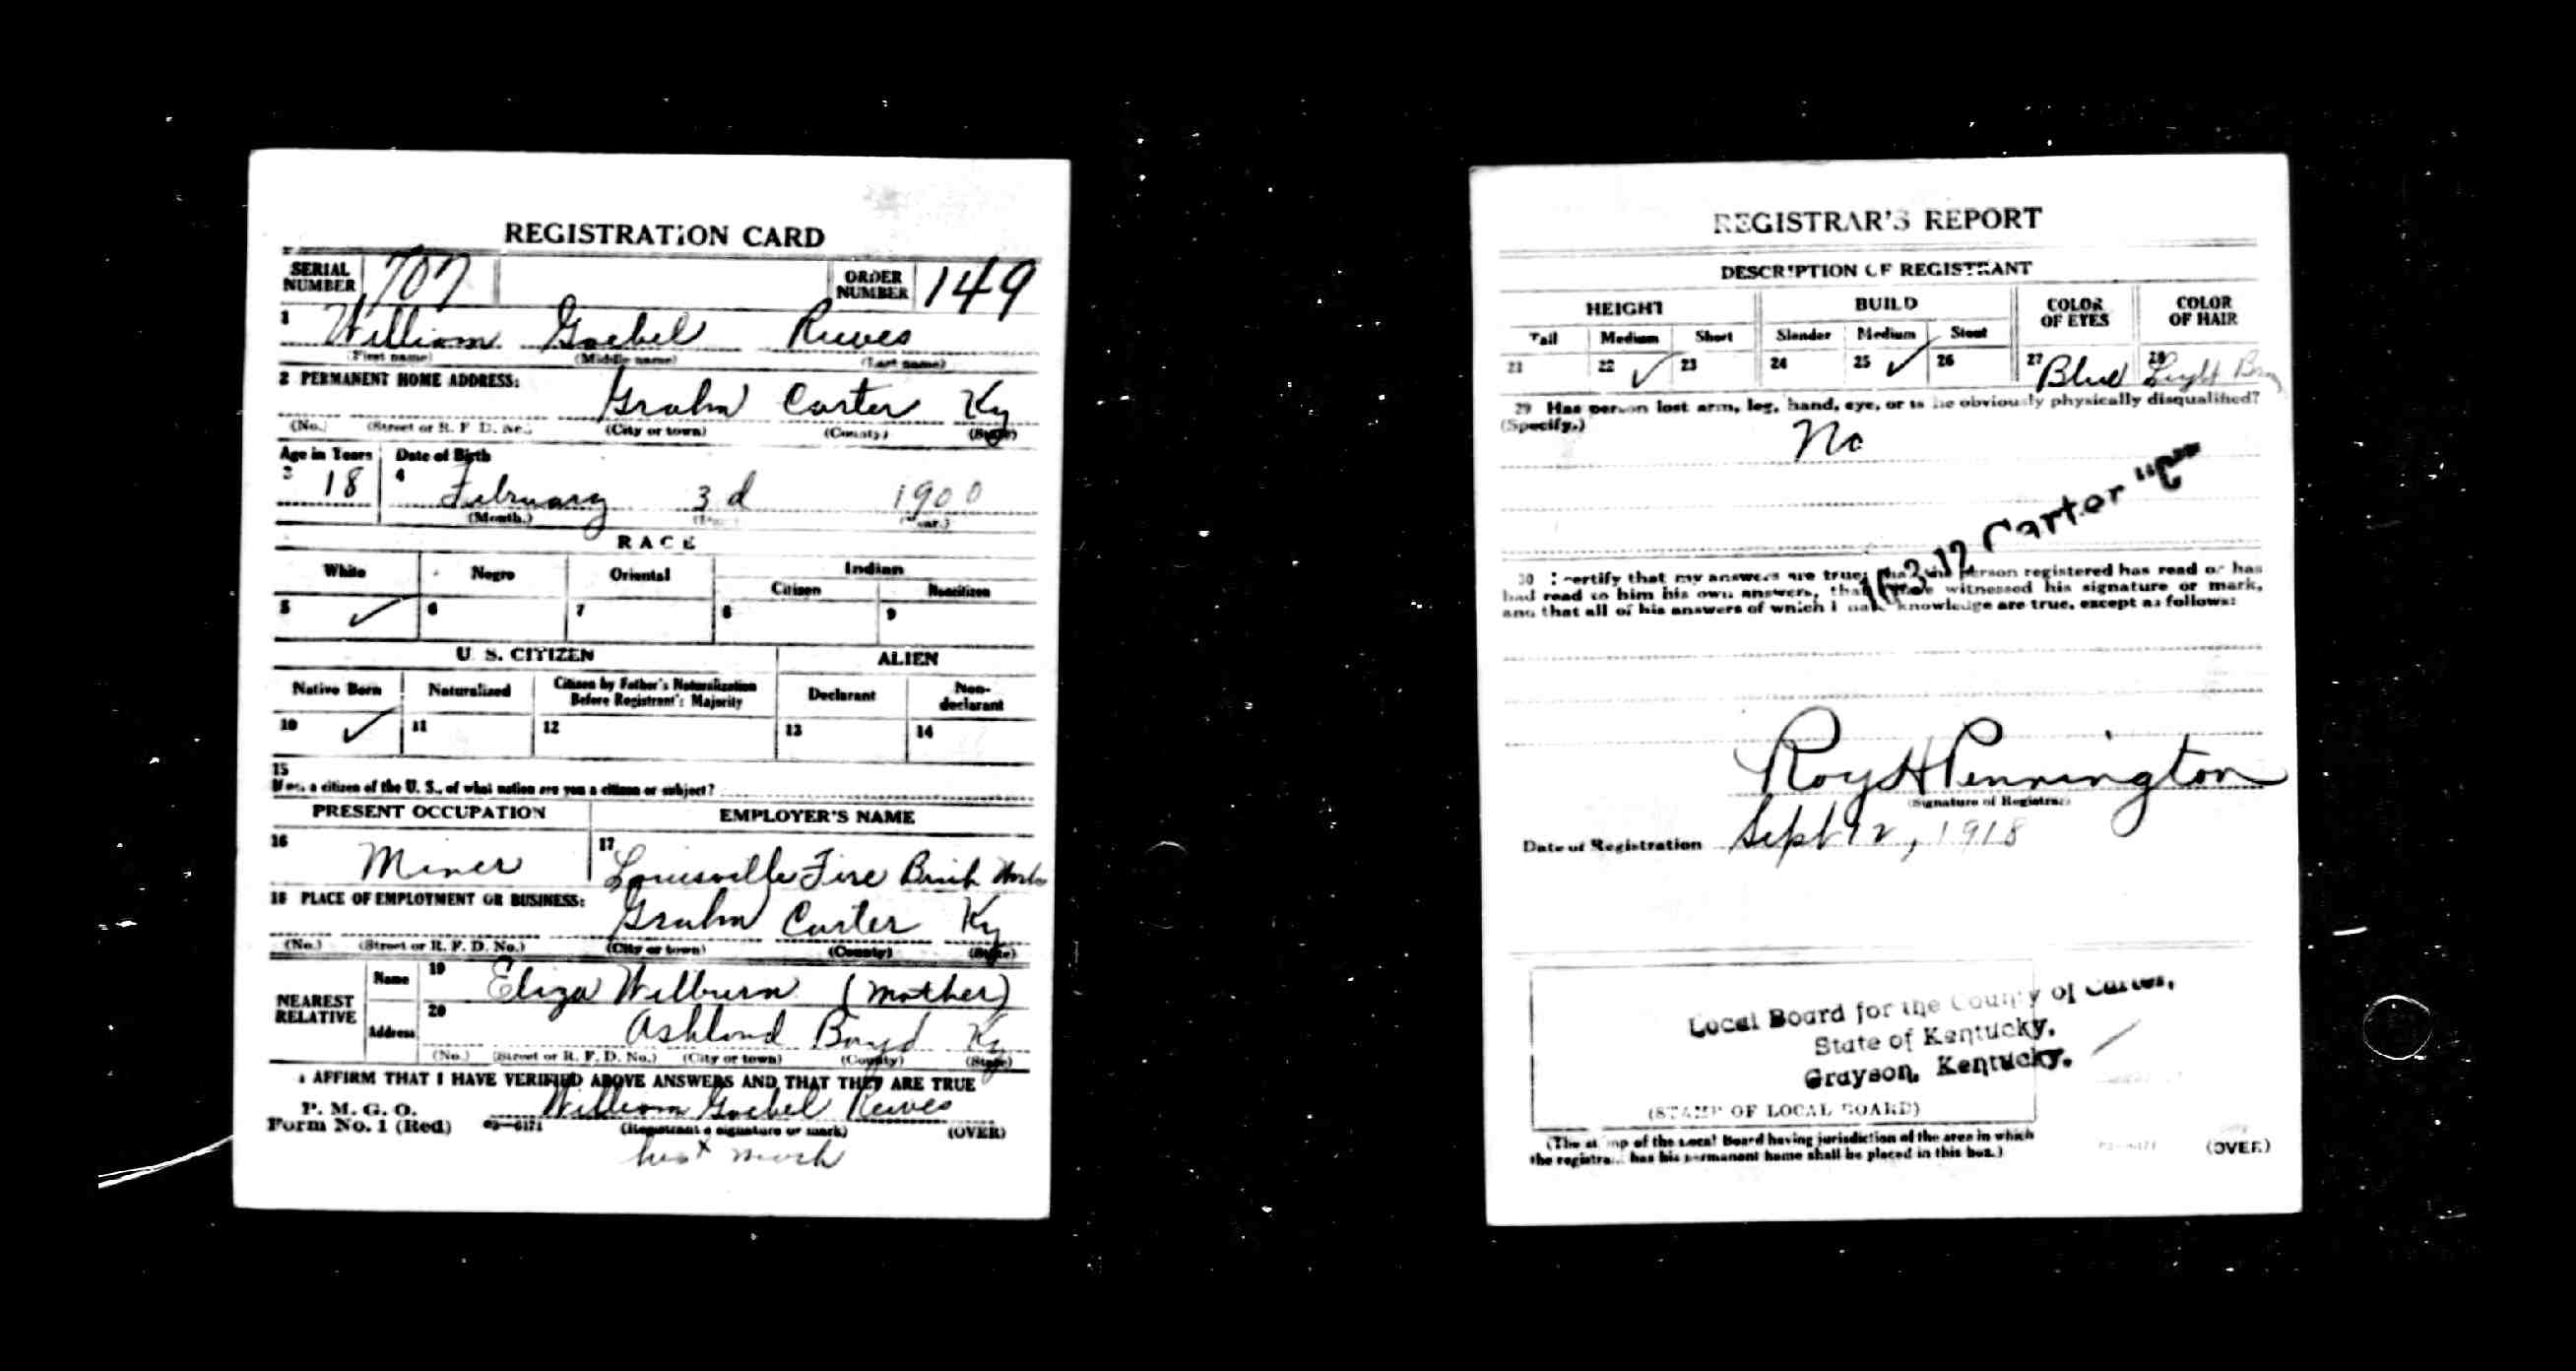 REGISTRATION CARD
SERIAL NUMBER 707 ORDER NUMBER 149
1 William Goebel Reeves
(First name) (Middle name) (Last name)
2 PERMANENT HOME ADDRESS:
Grahn Carter Ky
(No.) (Street or R. F. D. No.) (City or town) (County) (State)
Age in Years Date of Birth
3 18 4 February 3d 1900
(Month.) (Day.) (Year.)
RACE
White Negro Oriental Indian
Citizen Noncitizen
5 ✓ 6 7 8 9
U. S. CITIZEN ALIEN
Native Born Naturalized Citizen by Father's Naturalization Before Registrant's Majority Declarant Non-declarant
10 ✓ 11 12 13 14
15
If not a citizen of the U. S., of what nation are you a citizen or subject?
PRESENT OCCUPATION EMPLOYER'S NAME
16 Miner 17 Louisville Fire Brick Works
18 PLACE OF EMPLOYMENT OR BUSINESS:
Grahn Carter Ky
(No.) (Street or R. F. D. No.) (City or town) (County) (State)
NEAREST RELATIVE Name 19 Eliza Wilburn (Mother)
Address 20 Ashland Boyd Ky
(No.) (Street or R. F. D. No.) (City or town) (County) (State)
I AFFIRM THAT I HAVE VERIFIED ABOVE ANSWERS AND THAT THEY ARE TRUE
P. M. G. O.
Form No. 1 (Red) 03—6171 William Goebel Reeves
(Registrant's signature or mark) (OVER)
his x mark
REGISTRAR'S REPORT
DESCRIPTION OF REGISTRANT
HEIGHT BUILD COLOR OF EYES COLOR OF HAIR
Tall Medium Short Slender Medium Stout
21 22 ✓ 23 24 25 ✓ 26 27 Blue 28 Light
29 Has person lost arm, leg, hand, eye, or is he obviously physically disqualified?
(Specify.)
No
16-3-17 Carter "C"
30 I certify that my answers are true; that the person registered has read or has
had read to him his own answers, that I have witnessed his signature or mark,
and that all of his answers of which I have knowledge are true, except as follows:
Roy H Pennington
(Signature of Registrar)
Date of Registration Sept 12, 1918
Local Board for the County of Carter,
State of Kentucky,
Grayson, Kentucky.
(STAMP OF LOCAL BOARD)
(The stamp of the Local Board having jurisdiction of the area in which
the registrant has his permanent home shall be placed in this box.)
(OVER)